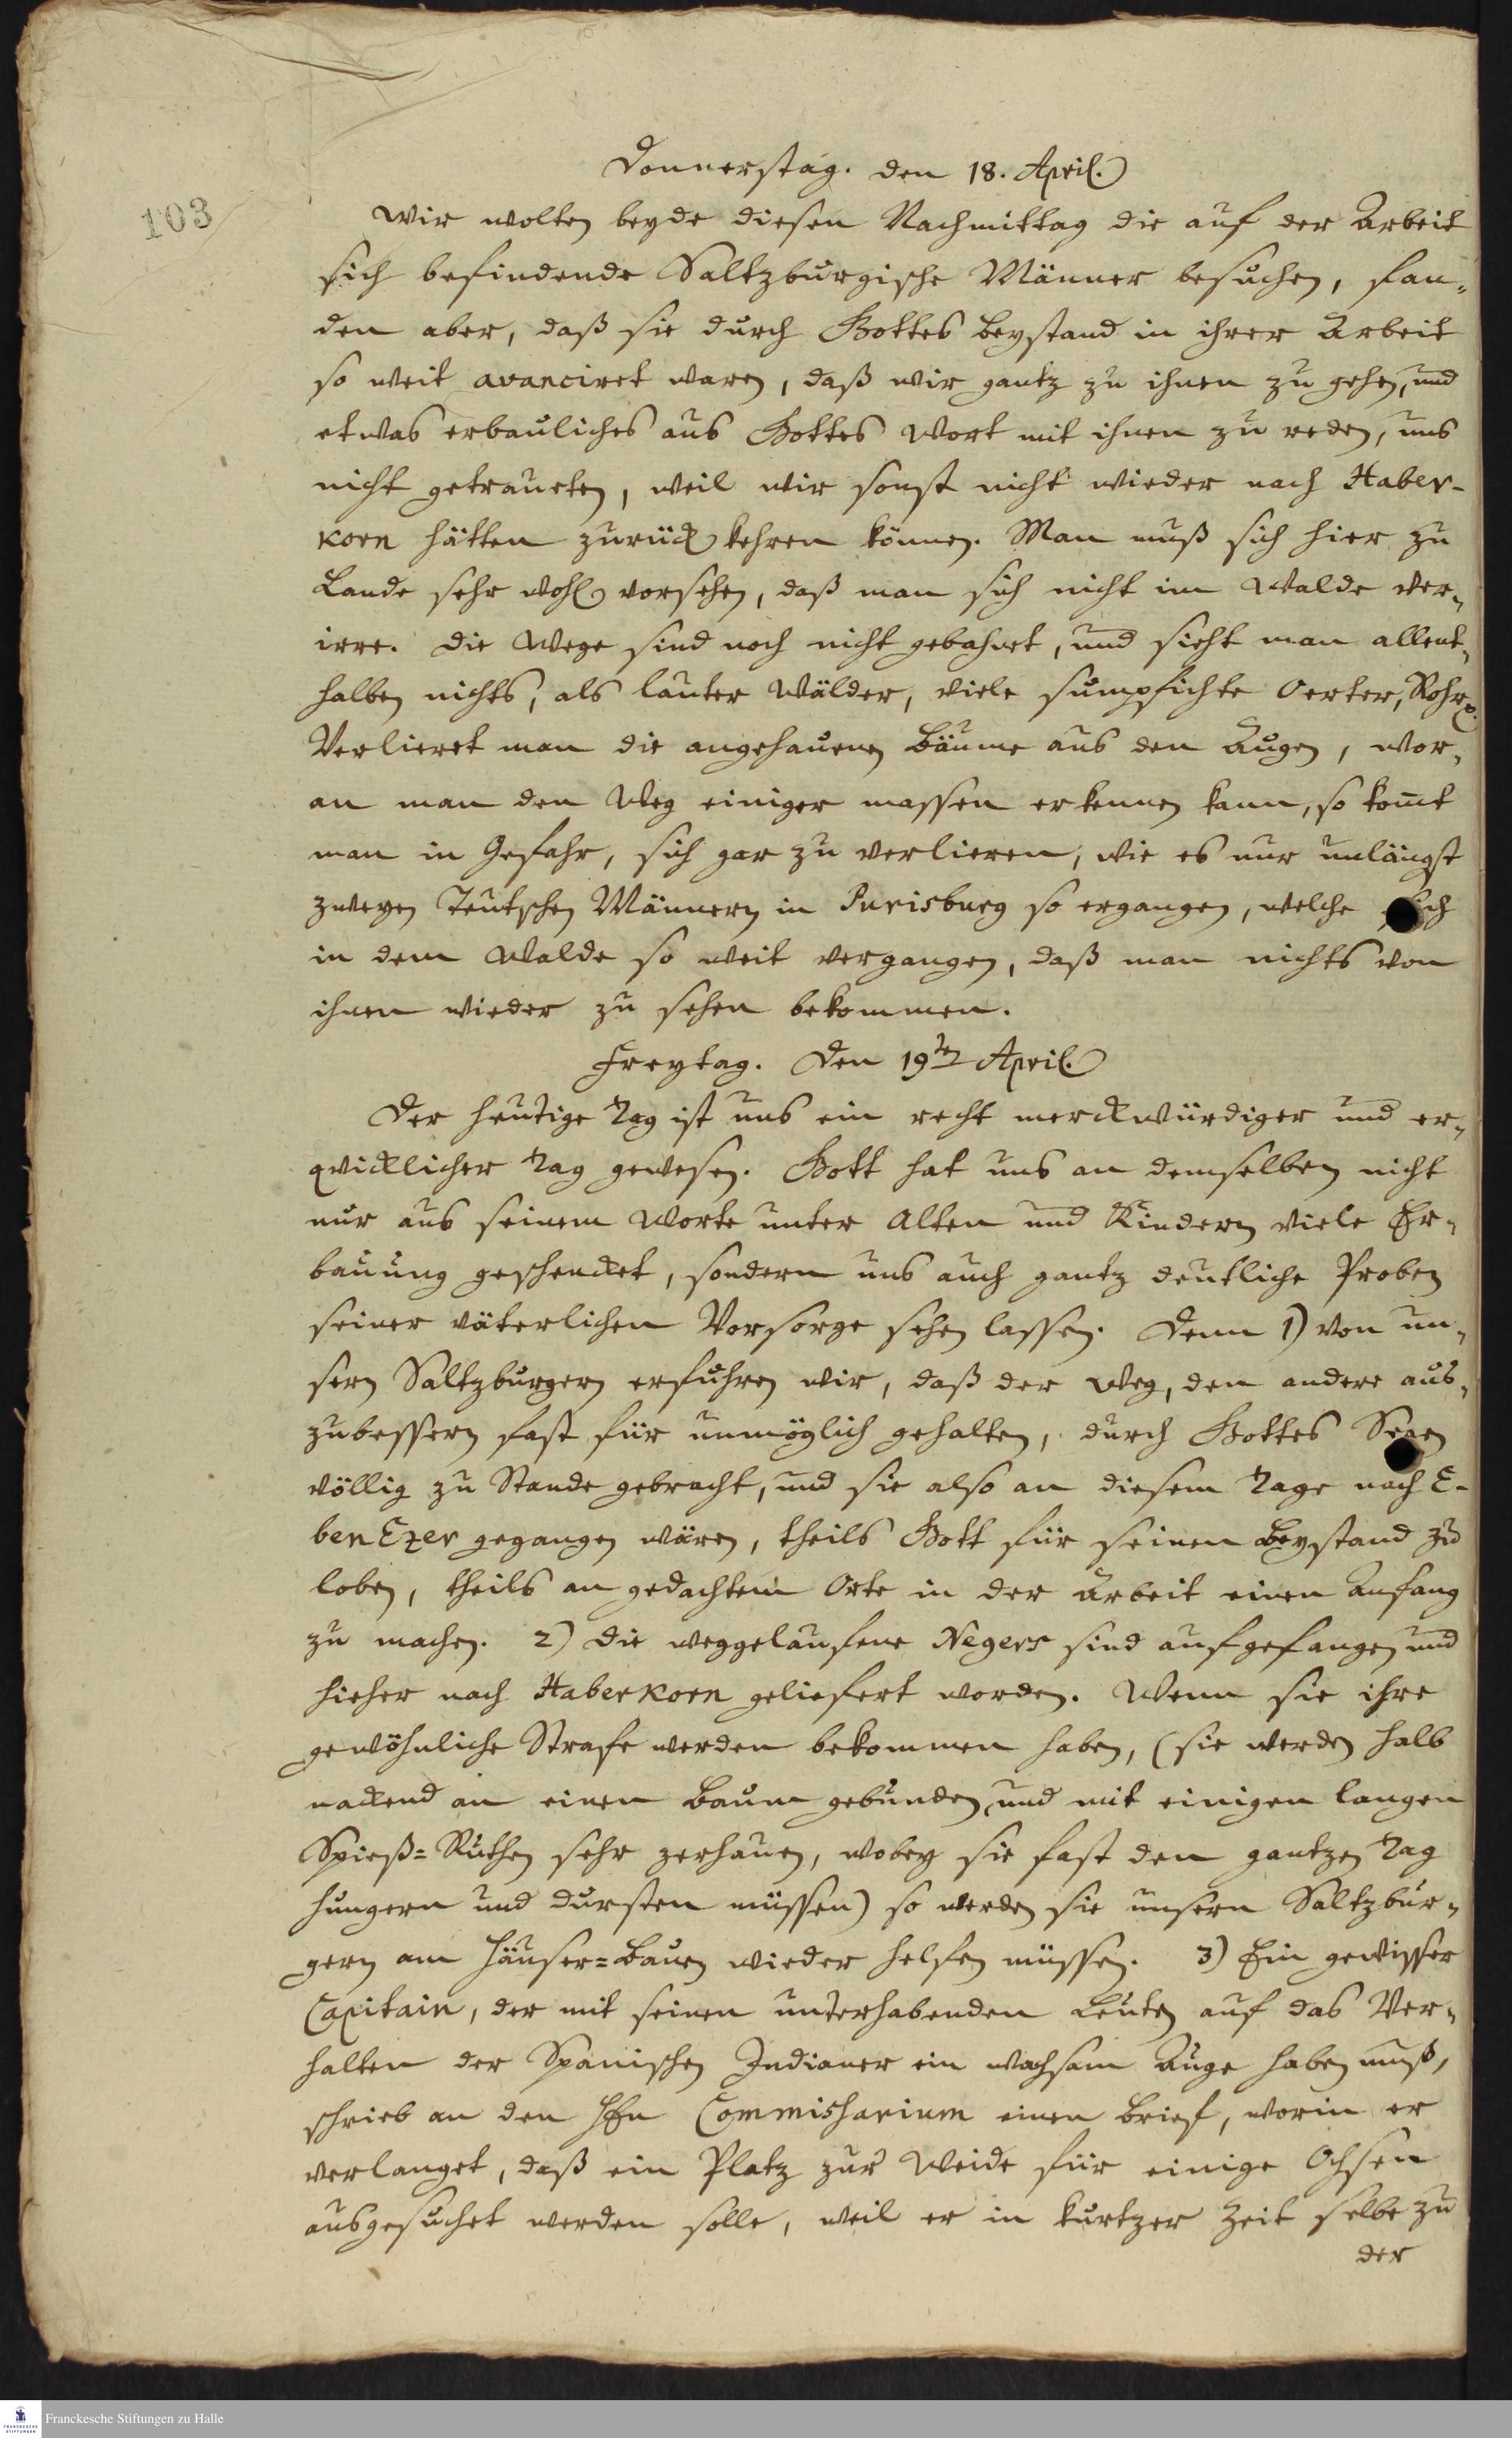 103
Donnerstag. den 18. April.
Wir wolten beyde diesen Nachmittag die auf der Arbeit
sich befindende Saltzburgische Männer besuchen, fan-
den aber, daß sie durch Gottes Beystand in ihrer Arbeit
so weit avanciret waren, daß wir gantz zu ihnen zu gehen, und
etwas erbauliches aus Gottes Wort mit ihnen zu reden, uns
nicht getraueten, weil wir sonst nicht wieder nach Haber-
korn hätten zurück kehren können. Man muß sich hier zu
Lande sehr wohl vorsehen, daß man sich nicht im Walde ver-
irre. Die Wege sind noch nicht gebahnt, und sieht man allent-
halben nichts, als lauter Wälder, viele sumpfichte Oerter, Rohr
Verlieret man die angehauenen Bäume aus den Augen, wor-
an man den Weg einiger massen erkennen kann, so komt
man in Gefahr, sich gar zu verlieren, wie es nur unlängst
zweyen Teutschen Männern in Purisburg so ergangen, welche sich
in dem Walde so weit vergangen, daß man nichts von
ihnen wieder zu sehen bekommen.
Freytag. Den 19ten April.
Der heutige Tag ist uns ein recht merckwürdiger und er-
qvicklicher Tag gewesen. Gott hat uns an demselben nicht
nur aus seinem Worte unter Alten und Kindern viele Er-
bauung geschencket, sondern uns auch gantz deutliche Proben
seiner väterlichen Vorsorge sehen lassen. Denn 1) von un-
sern Saltzburgern erfuhren wir, daß der Weg, den andere aus-
zubessern fast für unmöglich gehalten, durch Gottes Segen
völlig zu Stande gebracht, und sie also an diesem Tage nach E-
benEzer gegangen wären, theils Gott für seinen Beystand zu
loben, theils an gedachtem Orte in der Arbeit einen Anfang
zu machen. 2) Die weggelaufene Negers sind aufgefangen und
hieher nach Haberkorn geliefert worden. Wenn sie ihre
gewöhnliche Strafe werden bekommen haben, (sie werden halb
nackend an einen Baum gebunden, und mit einigen langen
Spieß=Ruthen sehr zerhauen, wobey sie fast den gantzen Tag
hungern und dursten müssen) so werden sie unsern Saltzbur-
gern am Häuser=Bauen wieder helfen müssen. 3) Ein gewisser
Capitain, der mit seinen unterhabenden Leuten auf das Ver-
halten der Spanischen Indianer ein wachsam Auge haben muß,
schrieb an den HEn Commissarium einen Brief, worin er
verlanget, daß ein Platz zur Weide für einige Ochsen
ausgesuchet werden solle, weil er in kurtzer Zeit selbe zu
der
Franckesche Stiftungen zu Halle